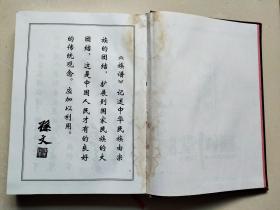 《族谱》记述中华民族由宗
族的团结，扩展到国家民族的大
团结，这是中国人民才有的良好
的传统观念。应加以利用。
孙文